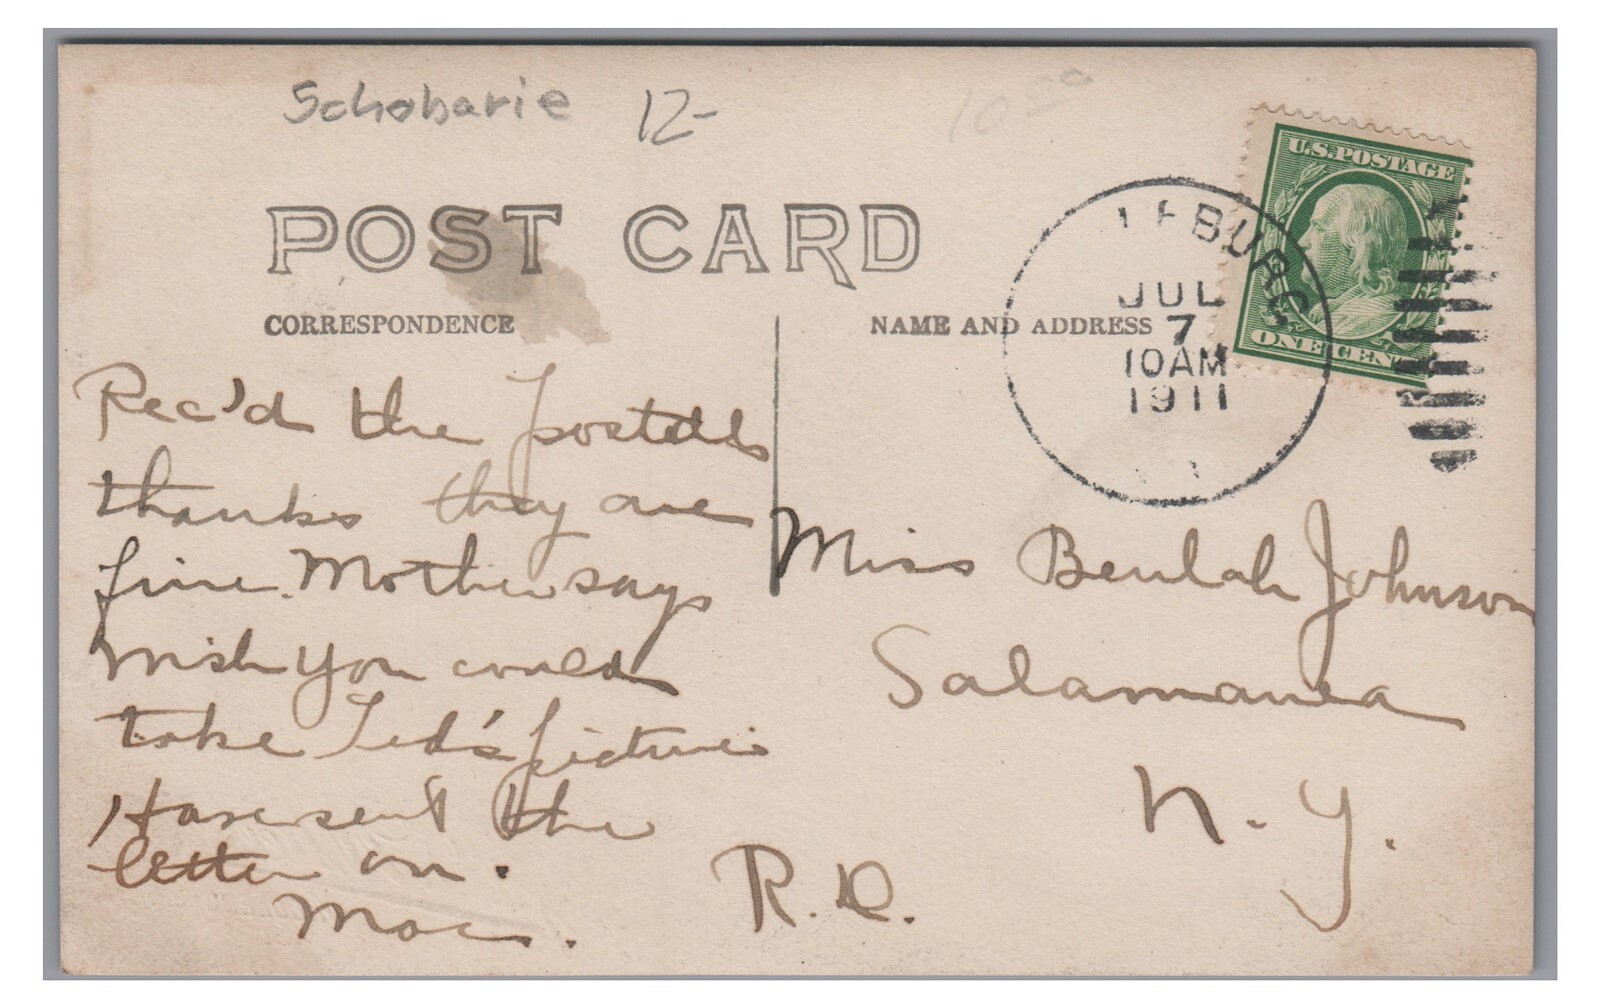 Schoharie 12-
10.00
POST CARD
CORRESPONDENCE
NAME AND ADDRESS
U.S. POSTAGE
ONE CENT
LEBURG
JUL
7
10AM
1911
Rec'd the postals
thanks they are
fine. Mother says
wish you could
take Ted's picture.
Have sent the
letter on.
Mac.
Miss Beulah Johnson
Salamanca
N.Y.
R.D.